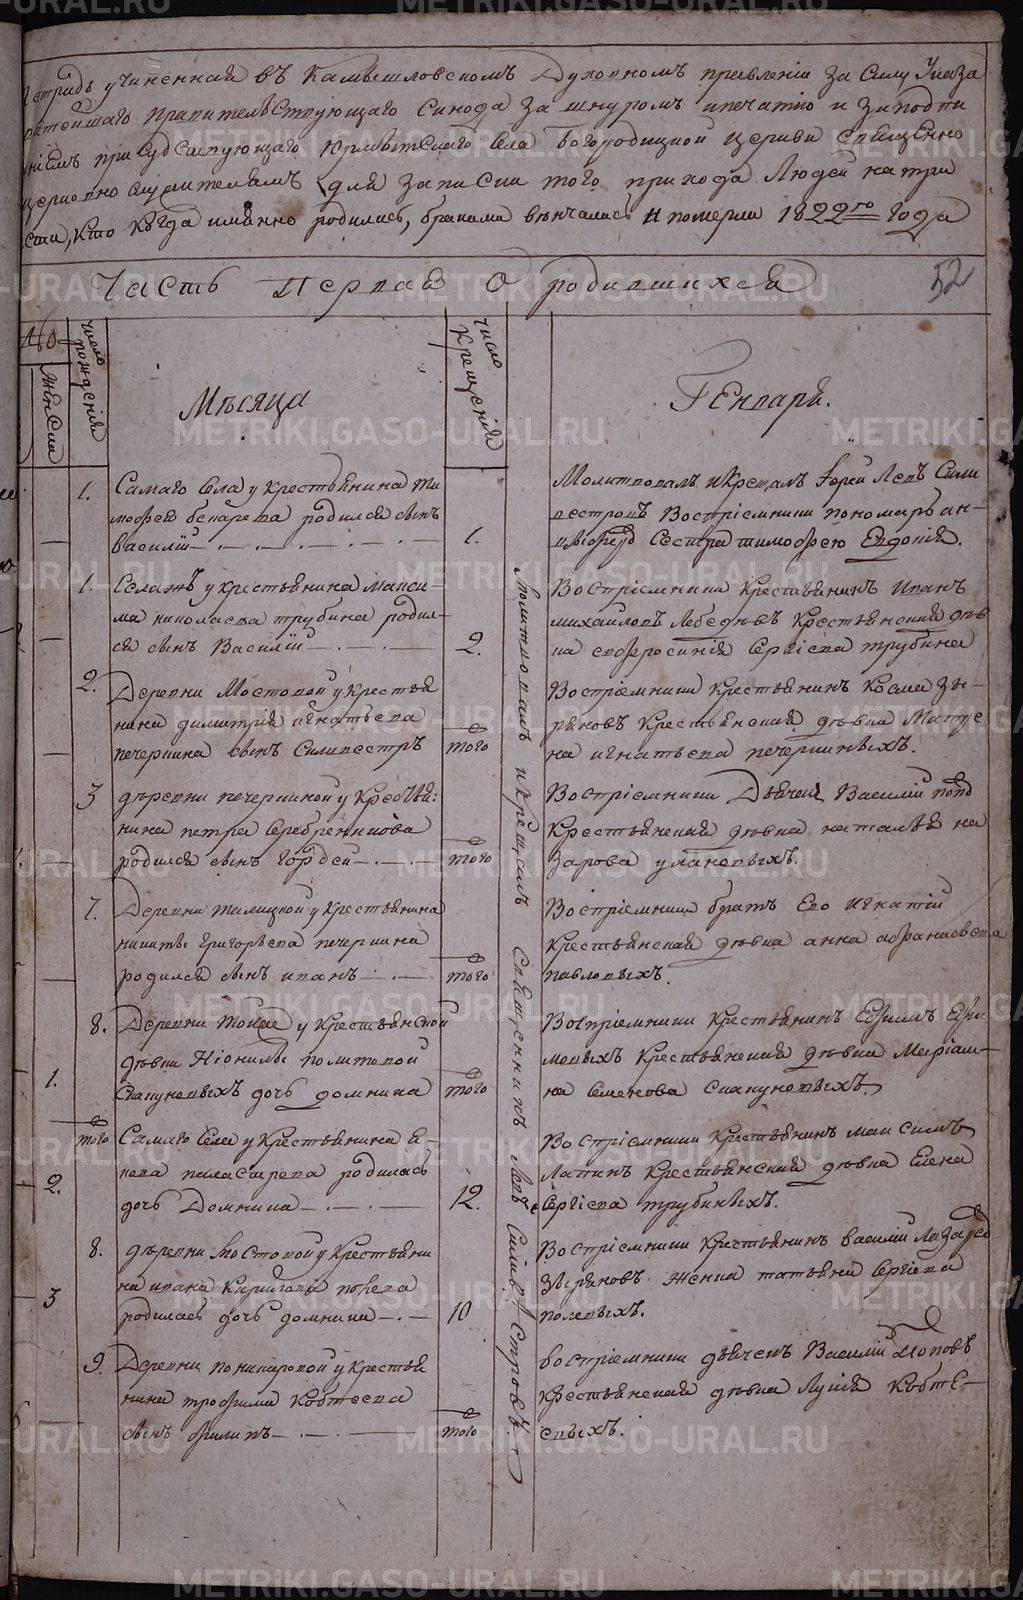 тетрадь учиненная въ Камышловскомъ Духовномъ правленiи за силу Указа
правительствующаго Синода за шнуромъ ипечатiю и заподпи
присудствующаго Юрмытскаго села Богородицкой церкви священно
церковно служителямъ для записки того прихода Людей натри
сти, кто когда имянно родились, браками вѣнчались и померли 1822го Года
Часть перьвая О родившихся
52
число рожденiя
Мѣсяца
число Крещенiя
Генваря.
женска
1.
Самаго Села у крестьянина ти
мофея родился сынъ
василiй
1.
Молитвовалъ иКрещалъ Iерей Левъ Силь
вестровъ Вострiемники пономарь
Сестра тимофею Евдокiя.
1.
Селажъ у крестьянина макси-
ма николаева трубина родил-
ся сынъ Василiй
2.
Вострiемники Крестьянинъ Иванъ
михайловъ Лебедевъ Крестьянская дѣв
ка ефросинiя Сергiева трубина
2.
Деревни Мостовой у крестья
нина димитрiя игнатьева
печеркина сынъ Силивестръ
того
Вострiемники крестьянинъ Косма Зы-
ряновъ Крестьянская дѣвка Матре
на игнатьева печеркиныхъ.
3
дѣревни печеркиной у Крестья:
нина петра Серебренникова
родился сынъ Гордей
того
Вострiемники Дьячекъ Василiй попов
Крестьянская дѣвка наталья на
зарова улановыхъ.
7.
Деревни талицкой у крестьянина
никиты григорьева печеркина
родился сынъ иванъ
того
Вострiемники братъ Его игнатiй
Крестьянская дѣвка анна афанасьева
павловыхъ.
1.
8.
Деревни у крестьянской
дѣвки Нiонилы политовой
Скакуновыхъ дочь домника
того
Воспрiемники крестьянинъ Ефимъ Ефи
мовыхъ Крестьянская дѣвка Марiам-
на Семенова Скакуновыхъ
2.
того
Самаго Села у Крестьянина Я-
кова родилась
дочь Домника
12.
Вострiемники крестьянинъ максимъ
Лапинъ Крестьянская дѣвка Елена
Сергiева трубиныхъ.
3
8.
дѣревни Мостовой у крестьяни
на ивана Кирилова полева
родилась дочь домника
10
Вострiемники Крестьянинъ василiй Лазарев
Зыряновъ женка татьяна Сергiева
полевыхъ.
9.
Деревни поникаровой у крестья
нина трофима Кобтсева
сынъ филипъ
того
вострiемники дьячекъ Василiй поповъ
крестьянская дѣвка Лукiя Кобтѣ-
евыхъ.
Молитвовалъ икрещалъ Священникъ Левъ Силивестровъ